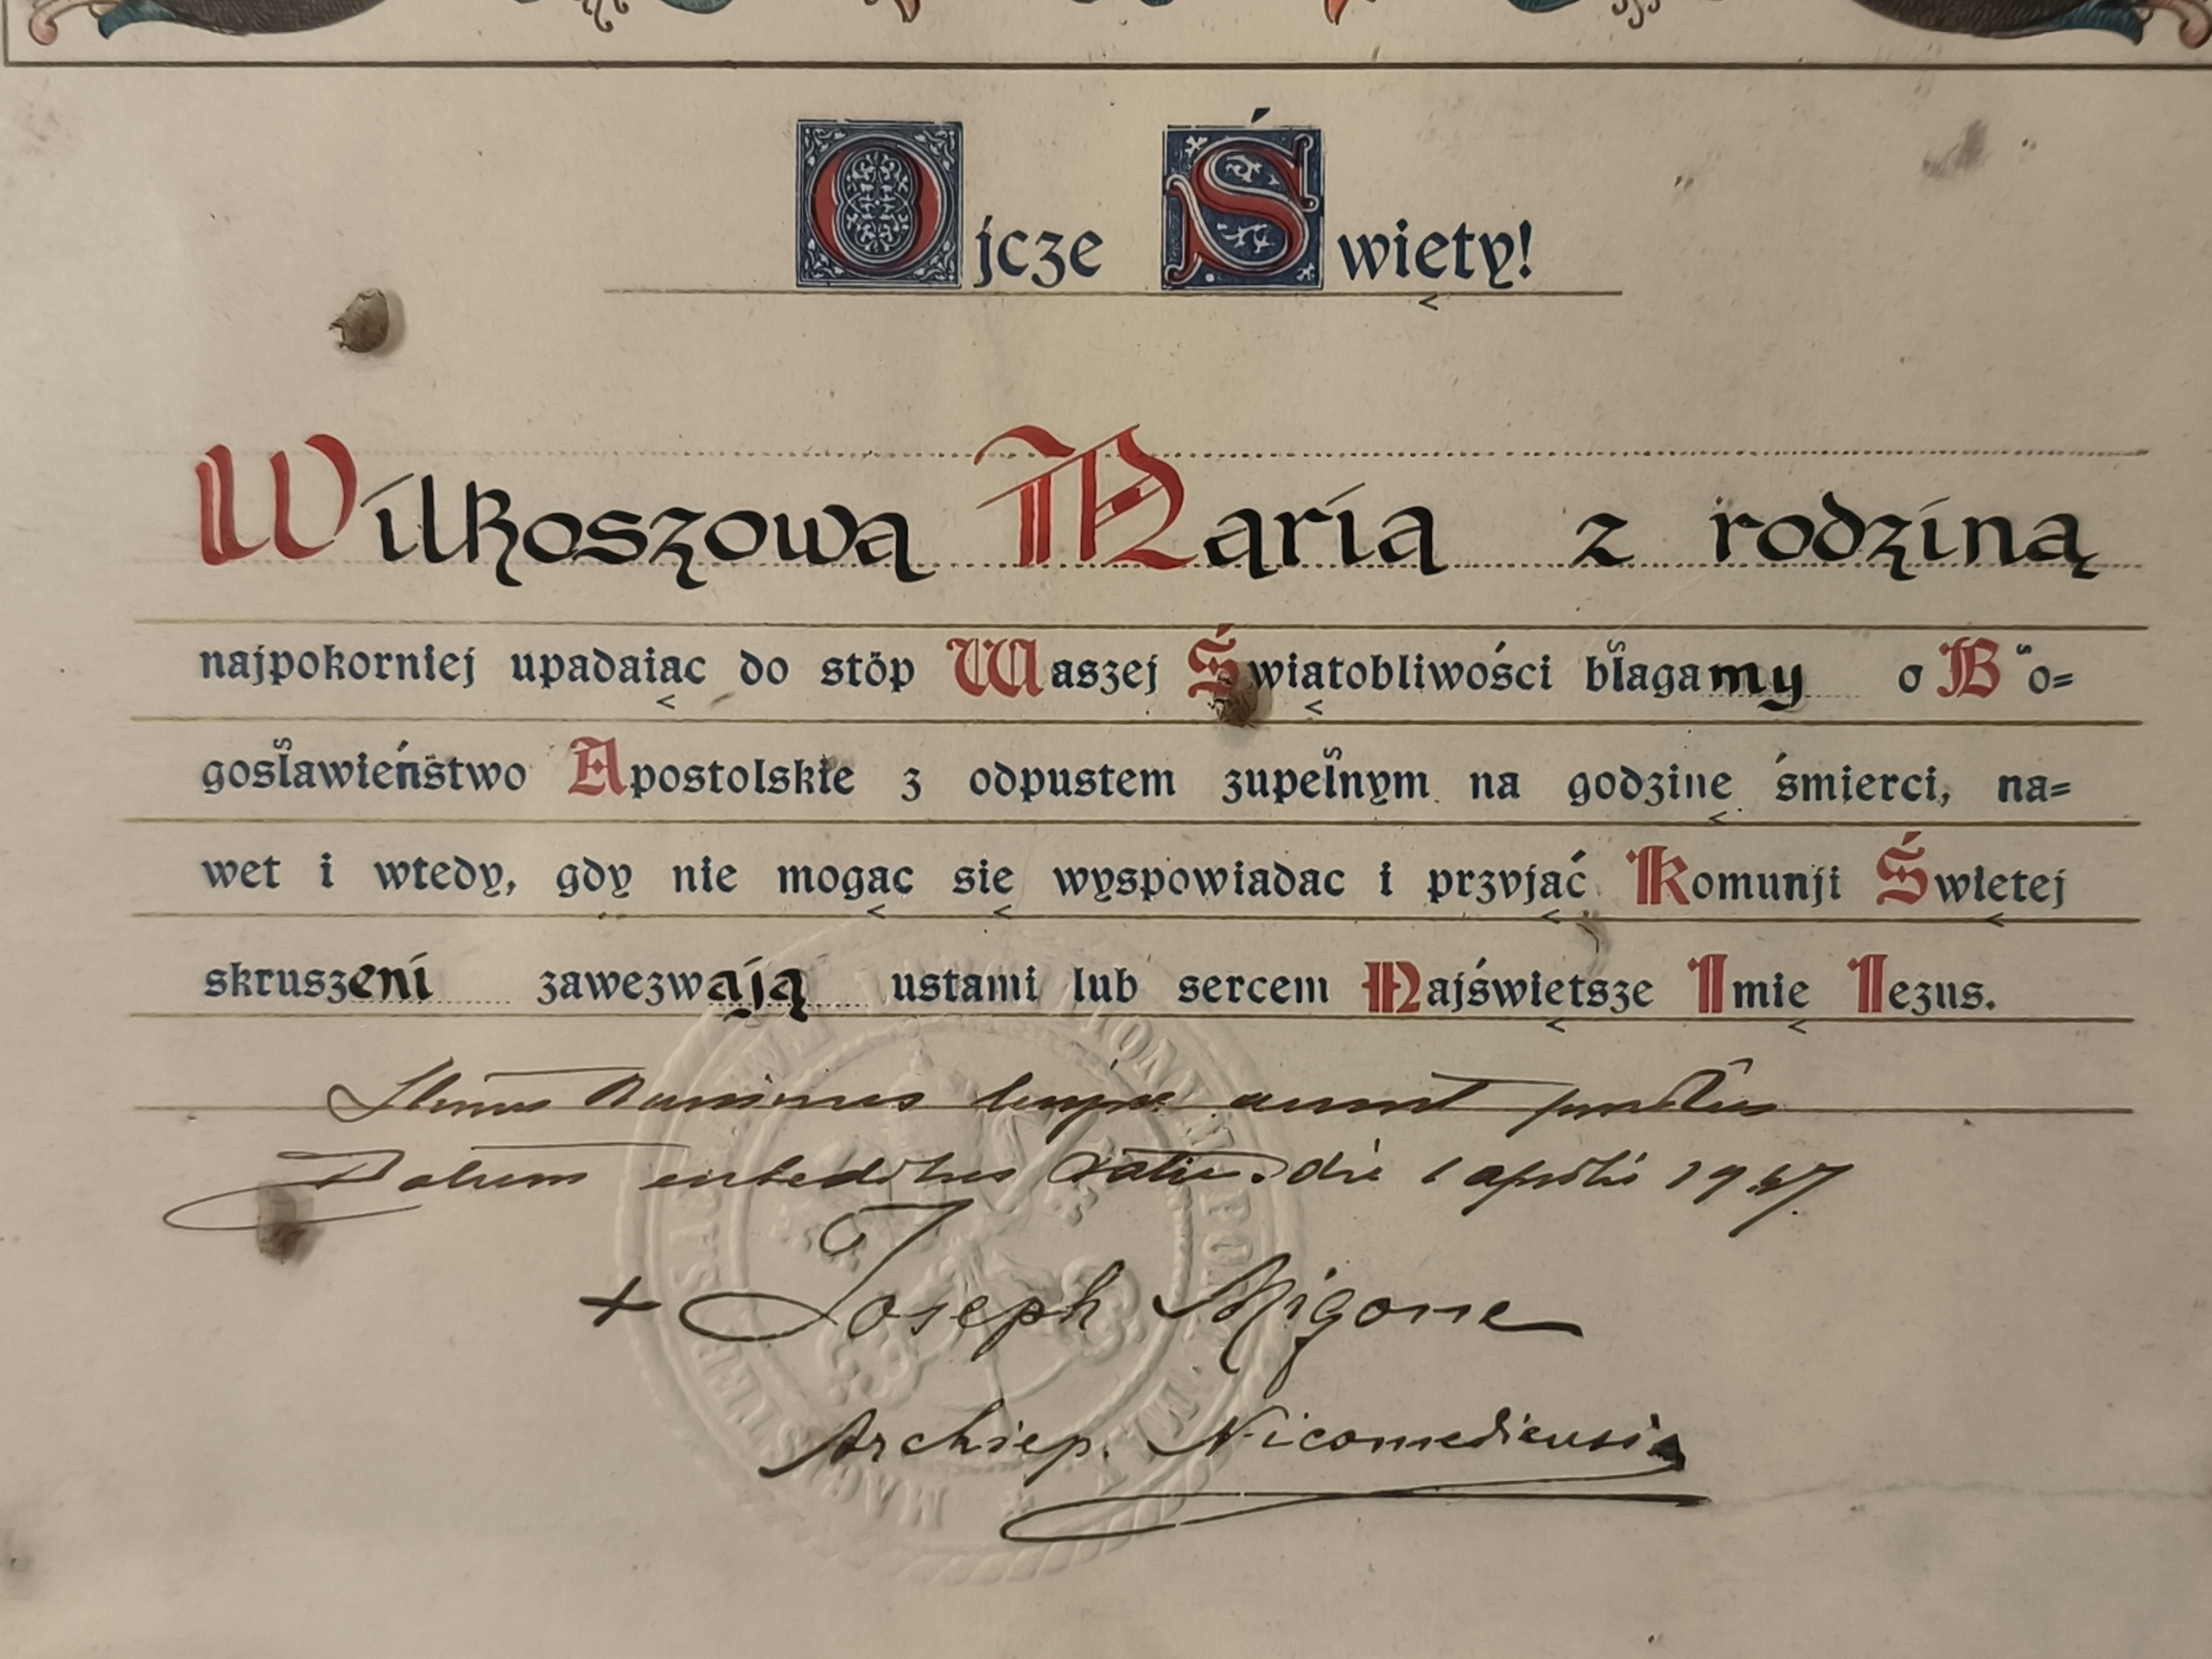 Ojcze Święty!
Wilkoszowa Maria z rodziną
najpokorniej upadaiąc do stóp Waszej Świątobliwości błagamy o Bo=
gosławieństwo Apostolskie z odpustem zupełnym na godzinę śmierci, na=
wet i wtedy, gdy nie mogąc się wyspowiadac i przyjąć Komunji Świętej
skruszeni zawezwają ustami lub sercem Najświętsze Imię Iezus.
benigne annuit precibus
Datum ex aedibus Vatic. die 1 aprilis 19
+ Joseph Migone
Archiep. Nicomediensis